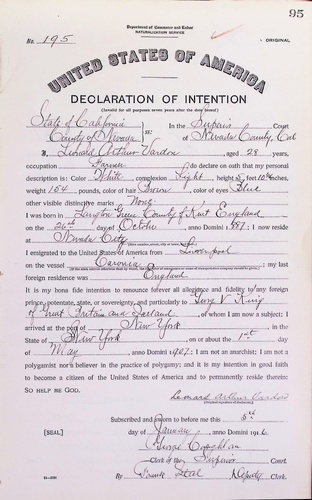 95
Department of Commerce and Labor
NATURALIZATION SERVICE
No. 195
ORIGINAL
UNITED STATES OF AMERICA
DECLARATION OF INTENTION
(Invalid for all purposes seven years after the date hereof)
State of California
County of Nevada ss: In the Superior Court of Nevada County, Cal
I, Leonard Arthur Vardon, aged 28 years,
occupation Farmer, do declare on oath my personal
description is: Color White, complexion Light, height 5 feet 10 inches,
weight 164 pounds, color of hair Brown, color of eyes Blue
other visible distinctive marks None
I was born in Green County of Kent England
on the 26th day of October, anno Domini 1887; I now reside
at Nevada City
I emigrated to the United States of America from Liverpool
on the vessel Caronia; my last
foreign residence was England
It is my bona fide intention to renounce forever all allegiance and fidelity to any foreign
prince, potentate, state, or sovereignty, and particularly to George V King
of Great Britain and Ireland, of whom I am now a subject; I
arrived at the port of New York, in the
State of New York, on or about the 1st day
of May, anno Domini; I am not an anarchist; I am not a
polygamist nor a believer in the practice of polygamy; and it is my intention in good faith
to become a citizen of the United States of America and to permanently reside therein:
SO HELP ME GOD.
Leonard Arthur Vardon
Subscribed and sworn to before me this 5th
[SEAL] day of January, anno Domini 1916
George
Clerk of the Superior Court.
By Frank Deputy Clerk.